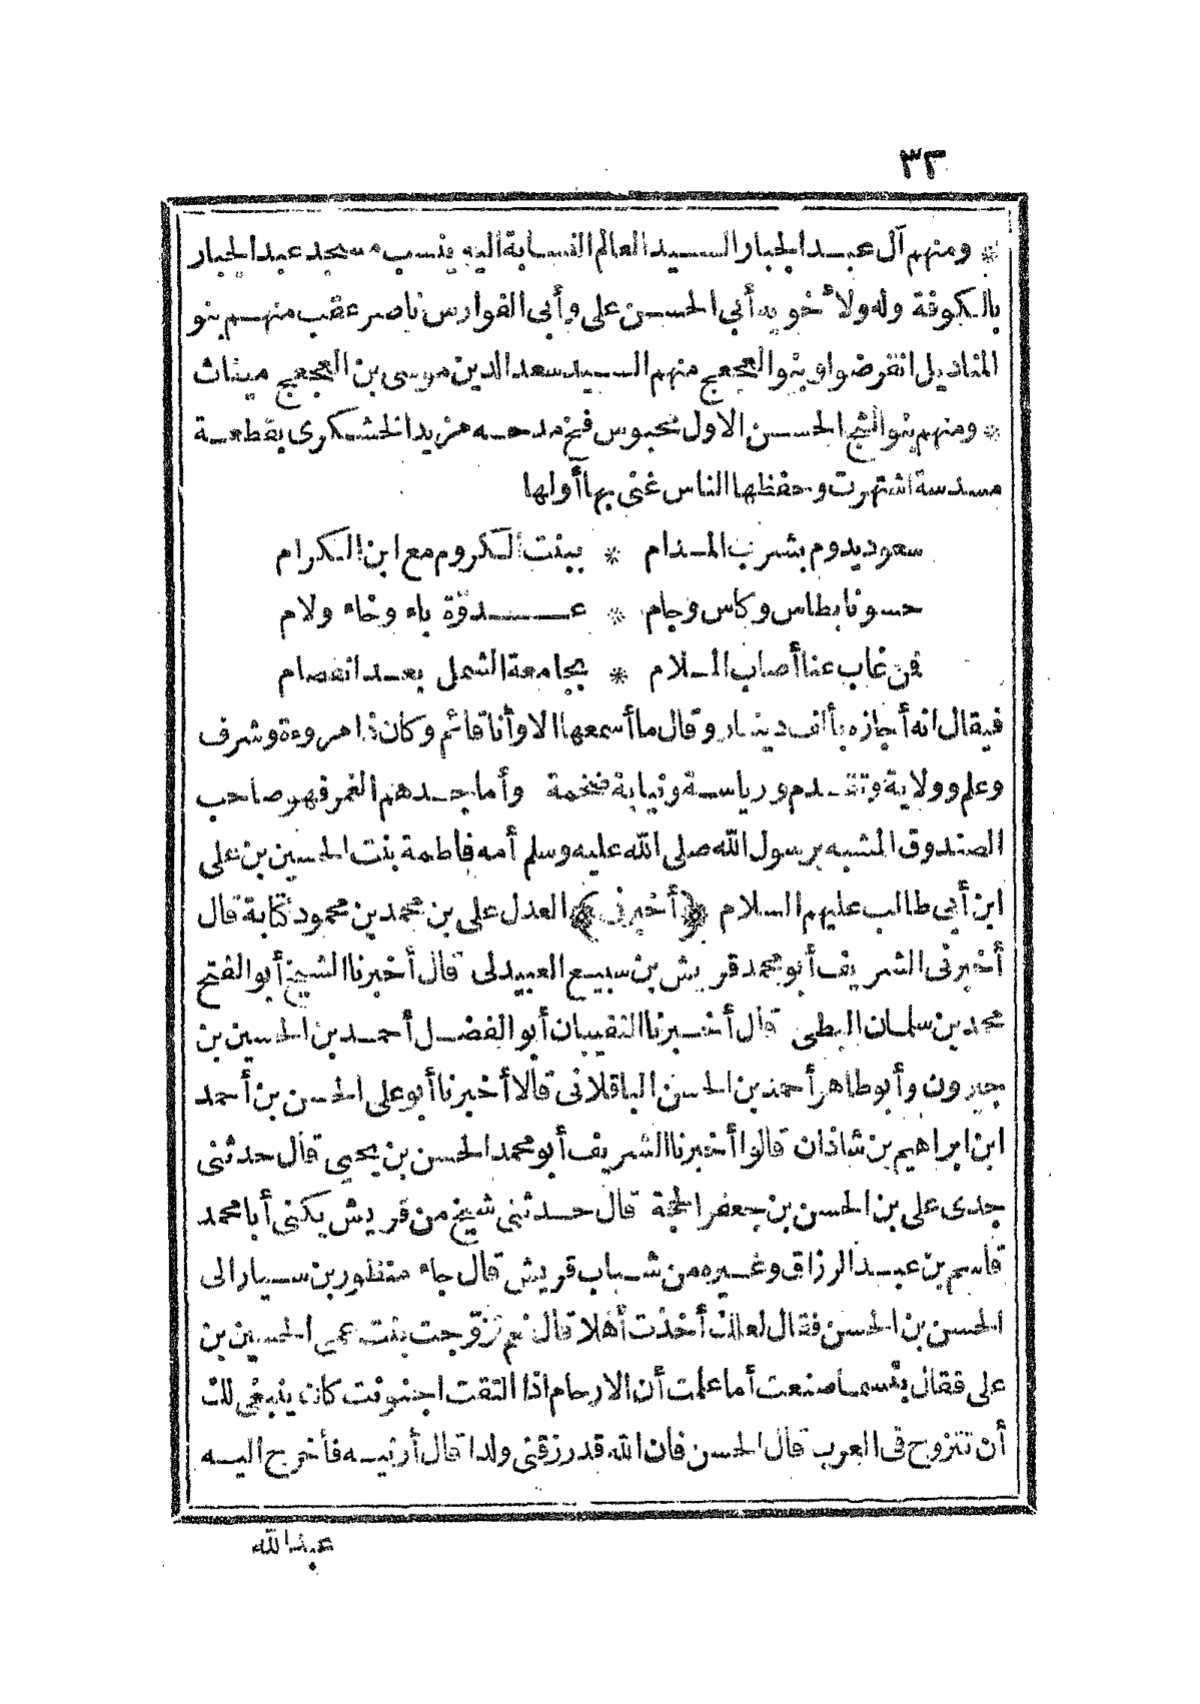 ٣٢
* ومنهم آل عبد الجبار السيد العالم النسابة اليه ينسب مسجد عبد الجبار
بالكوفة وله ولأخويه أبى الحسن على وأبى الفوارس ناصر عقب منهم بنو
المناديل انقرضوا وبنو العجعج منهم السيد سعد الدين موسى بن العجعج ميناث
* ومنهم بنو الشيخ الحسن الاول محبوس فخ مدحه مزيد الخشكرى بقطعة
مسدسة اشتهرت وحفظها الناس غنى بها أولها
سعود يدوم بشرب المدام * ببنت الكروم مع ابن الكرام
حسونا بطاس وكاس وجام * عدوّة باء وخاء ولام
فمن غاب عنا أصاب الملام * بجامعة الشمل بعد انفصام
فيقال انه أجازه بألف دينار وقال ما أسمعها الا وأنا قائم وكان ذا مروءة وشرف
وعلم وولاية وتقدم ورياسة ونيابة ضخمة وأما جدهم الغمر فهو صاحب
الصندوق المشبه برسول الله صلى الله عليه وسلم أمه فاطمة بنت الحسين بن على
ابن أبى طالب عليهم السلام ﴿أخبرنى﴾ العدل على بن محمد بن محمود كتابة قال
أخبرنى الشريف أبو محمد قريش بن سبيع العبيدلى قال أخبرنا الشيخ أبو الفتح
محمد بن سلمان البطى قال أخبرنا النقيبان أبو الفضل أحمد بن الحسين بن
جيرون وأبو طاهر أحمد بن الحسن الباقلانى قالا أخبرنا أبو على الحسن بن أحمد
ابن ابراهيم بن شاذان قالوا أخبرنا الشريف أبو محمد الحسن بن يحيى قال حدثنى
جدى على بن الحسن بن جعفر الحجة قال حدثنى شيخ من قريش يكنى أبا محمد
قاسم بن عبد الرزاق وغيره من شباب قريش قال جاء منظور بن سيار الى
الحسن بن الحسن فقال لعلك أخذت أهلا قال نعم تزوّجت بنت عمى الحسين بن
على فقال بئسما صنعت أما علمت أن الارحام اذا التقت اجنونت كان ينبغى لك
أن تتزوج فى العرب قال الحسن فان الله قد رزقنى ولدا قال أرنيه فأخرج اليه
عبد الله